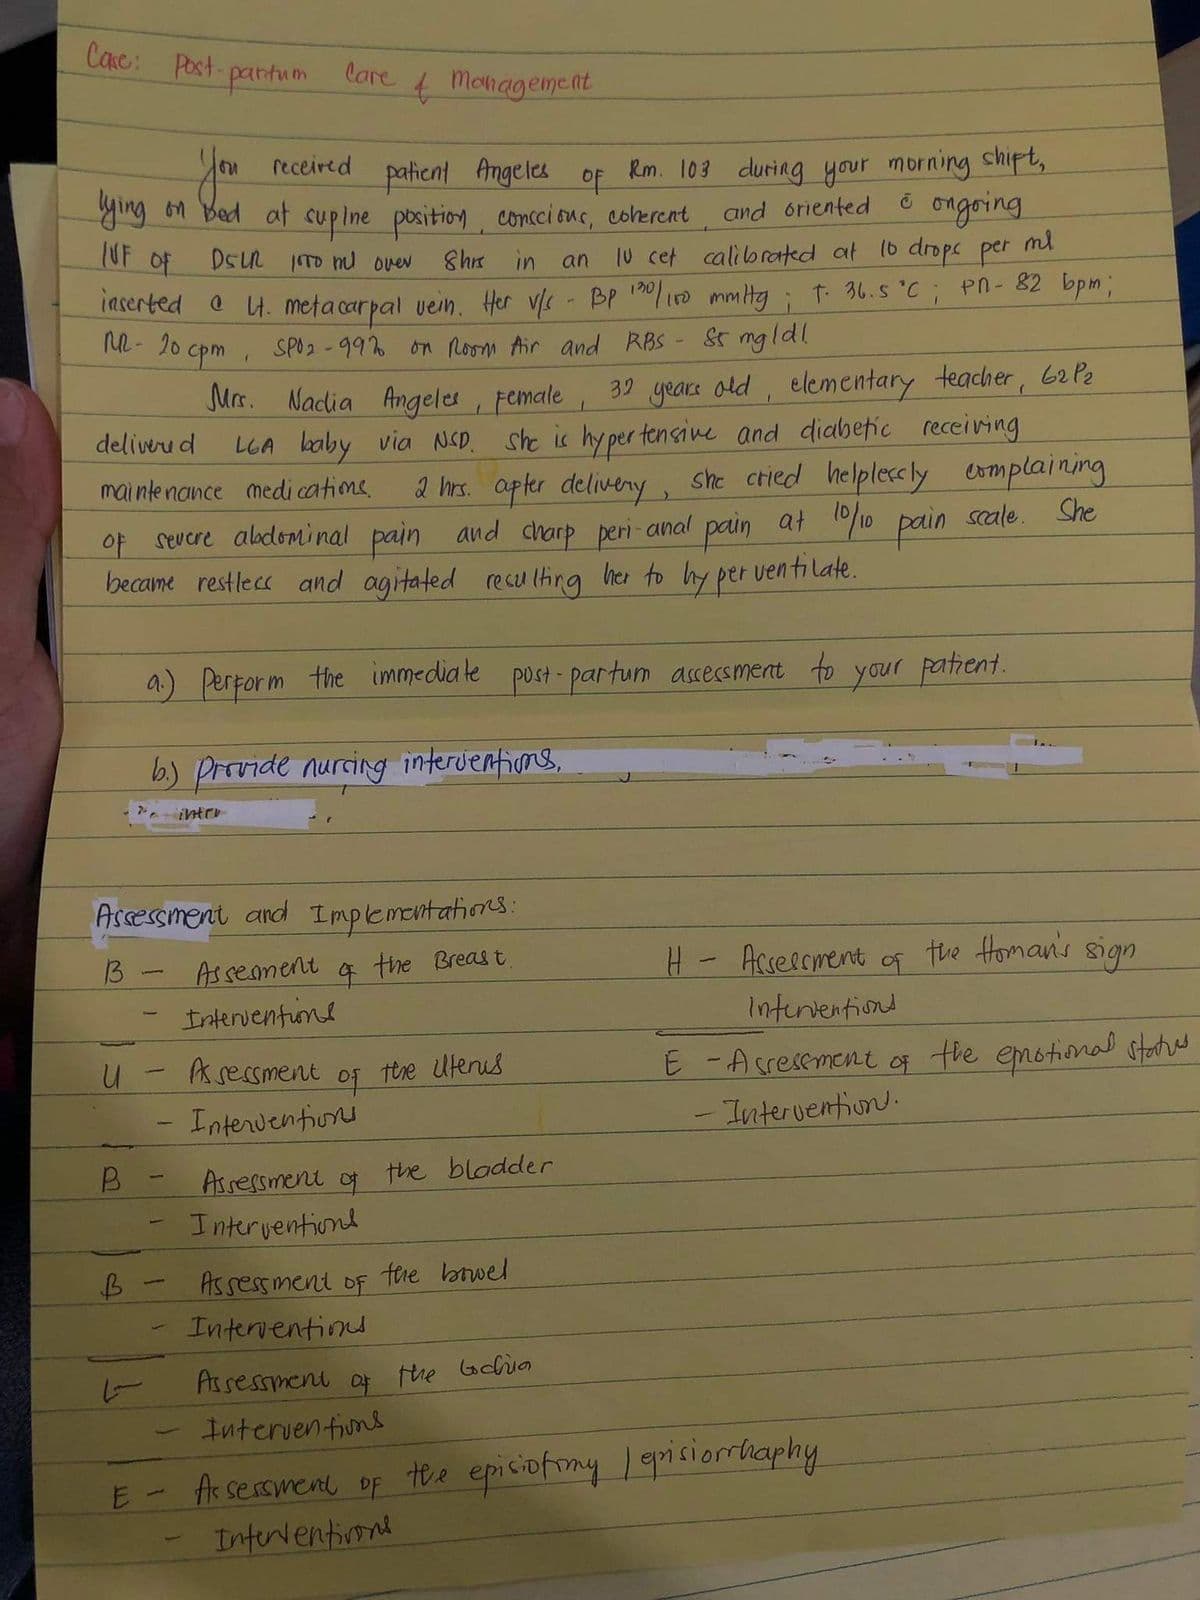 Case: Post-partum Care & Management
You received patient Angeles of Rm. 103 during your morning shift,
lying on bed at supine position, conscious, coherent and oriented c̄ ongoing
IVF of D5LR 1000 ml over 8hrs in an IV set calibrated at 10 drops per ml
inserted @ Lt. metacarpal vein. Her v/s - BP 130/100 mmHg ; T- 36.5 °C ; PR- 82 bpm;
RR- 20 cpm, SPO2 - 99% on Room Air and RBS - 85 mg/dl.
Mrs. Nadia Angeles, female, 32 years old, elementary teacher, G2P2
delivered LGA baby via NSD. She is hypertensive and diabetic receiving
maintenance medications. 2 hrs. after delivery, she cried helplessly complaining
of severe abdominal pain and sharp peri-anal pain at 10/10 pain scale. She
became restless and agitated resulting her to hyperventilate.
a.) Perform the immediate post-partum assessment to your patient.
b.) Provide nursing interventions.
Assessment and Implementations:
B - Assesment of the Breast.
- Interventions
U - Assessment of the Uterus
- Interventions
B - Assessment of the bladder
- Interventions
B - Assessment of the bowel
- Interventions
L - Assessment of the Lochia
- Interventions
E - Assessment of the episiotomy / episiorrhaphy
- Interventions
H - Assessment of the Homan's sign
Interventions
E - Assessment of the emotional status
- Intervention.